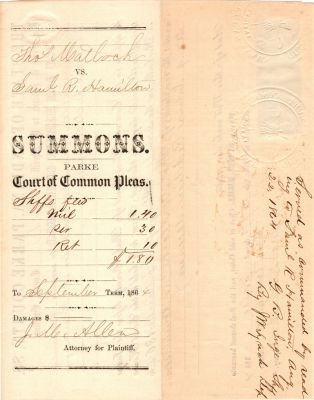 Thos Matlock
VS.
Saml R. Hamilton
SUMMONS.
PARKE
Court of Common Pleas.
Shffs fees
Mil 1.40
Ser 30
Ret 10
$1.80
To September Term, 1864
Damages $
J. Mc Allen
Attorney for Plaintiff.
Served as commanded by read-
ing to Saml R Hamilton Aug
22, 1864
G B
By